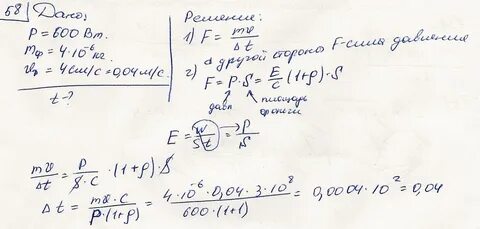 58) Дано:
P = 600 Вт.
mф = 4·10⁻⁶ кг.
vф = 4 см/с = 0,04 м/с.
t - ?
Решение:
1) F = mv/Δt
с другой стороны F - сила давления
2) F = P·S = E/c (1+ρ)·S
давл площадь фольги
E = W/St = P/S
mv/Δt = P/(S·c) · (1+ρ)·S
Δt = mv·c/(P·(1+ρ)) = 4·10⁻⁶·0,04·3·10⁸/(600·(1+1)) = 0,0004·10² = 0,04